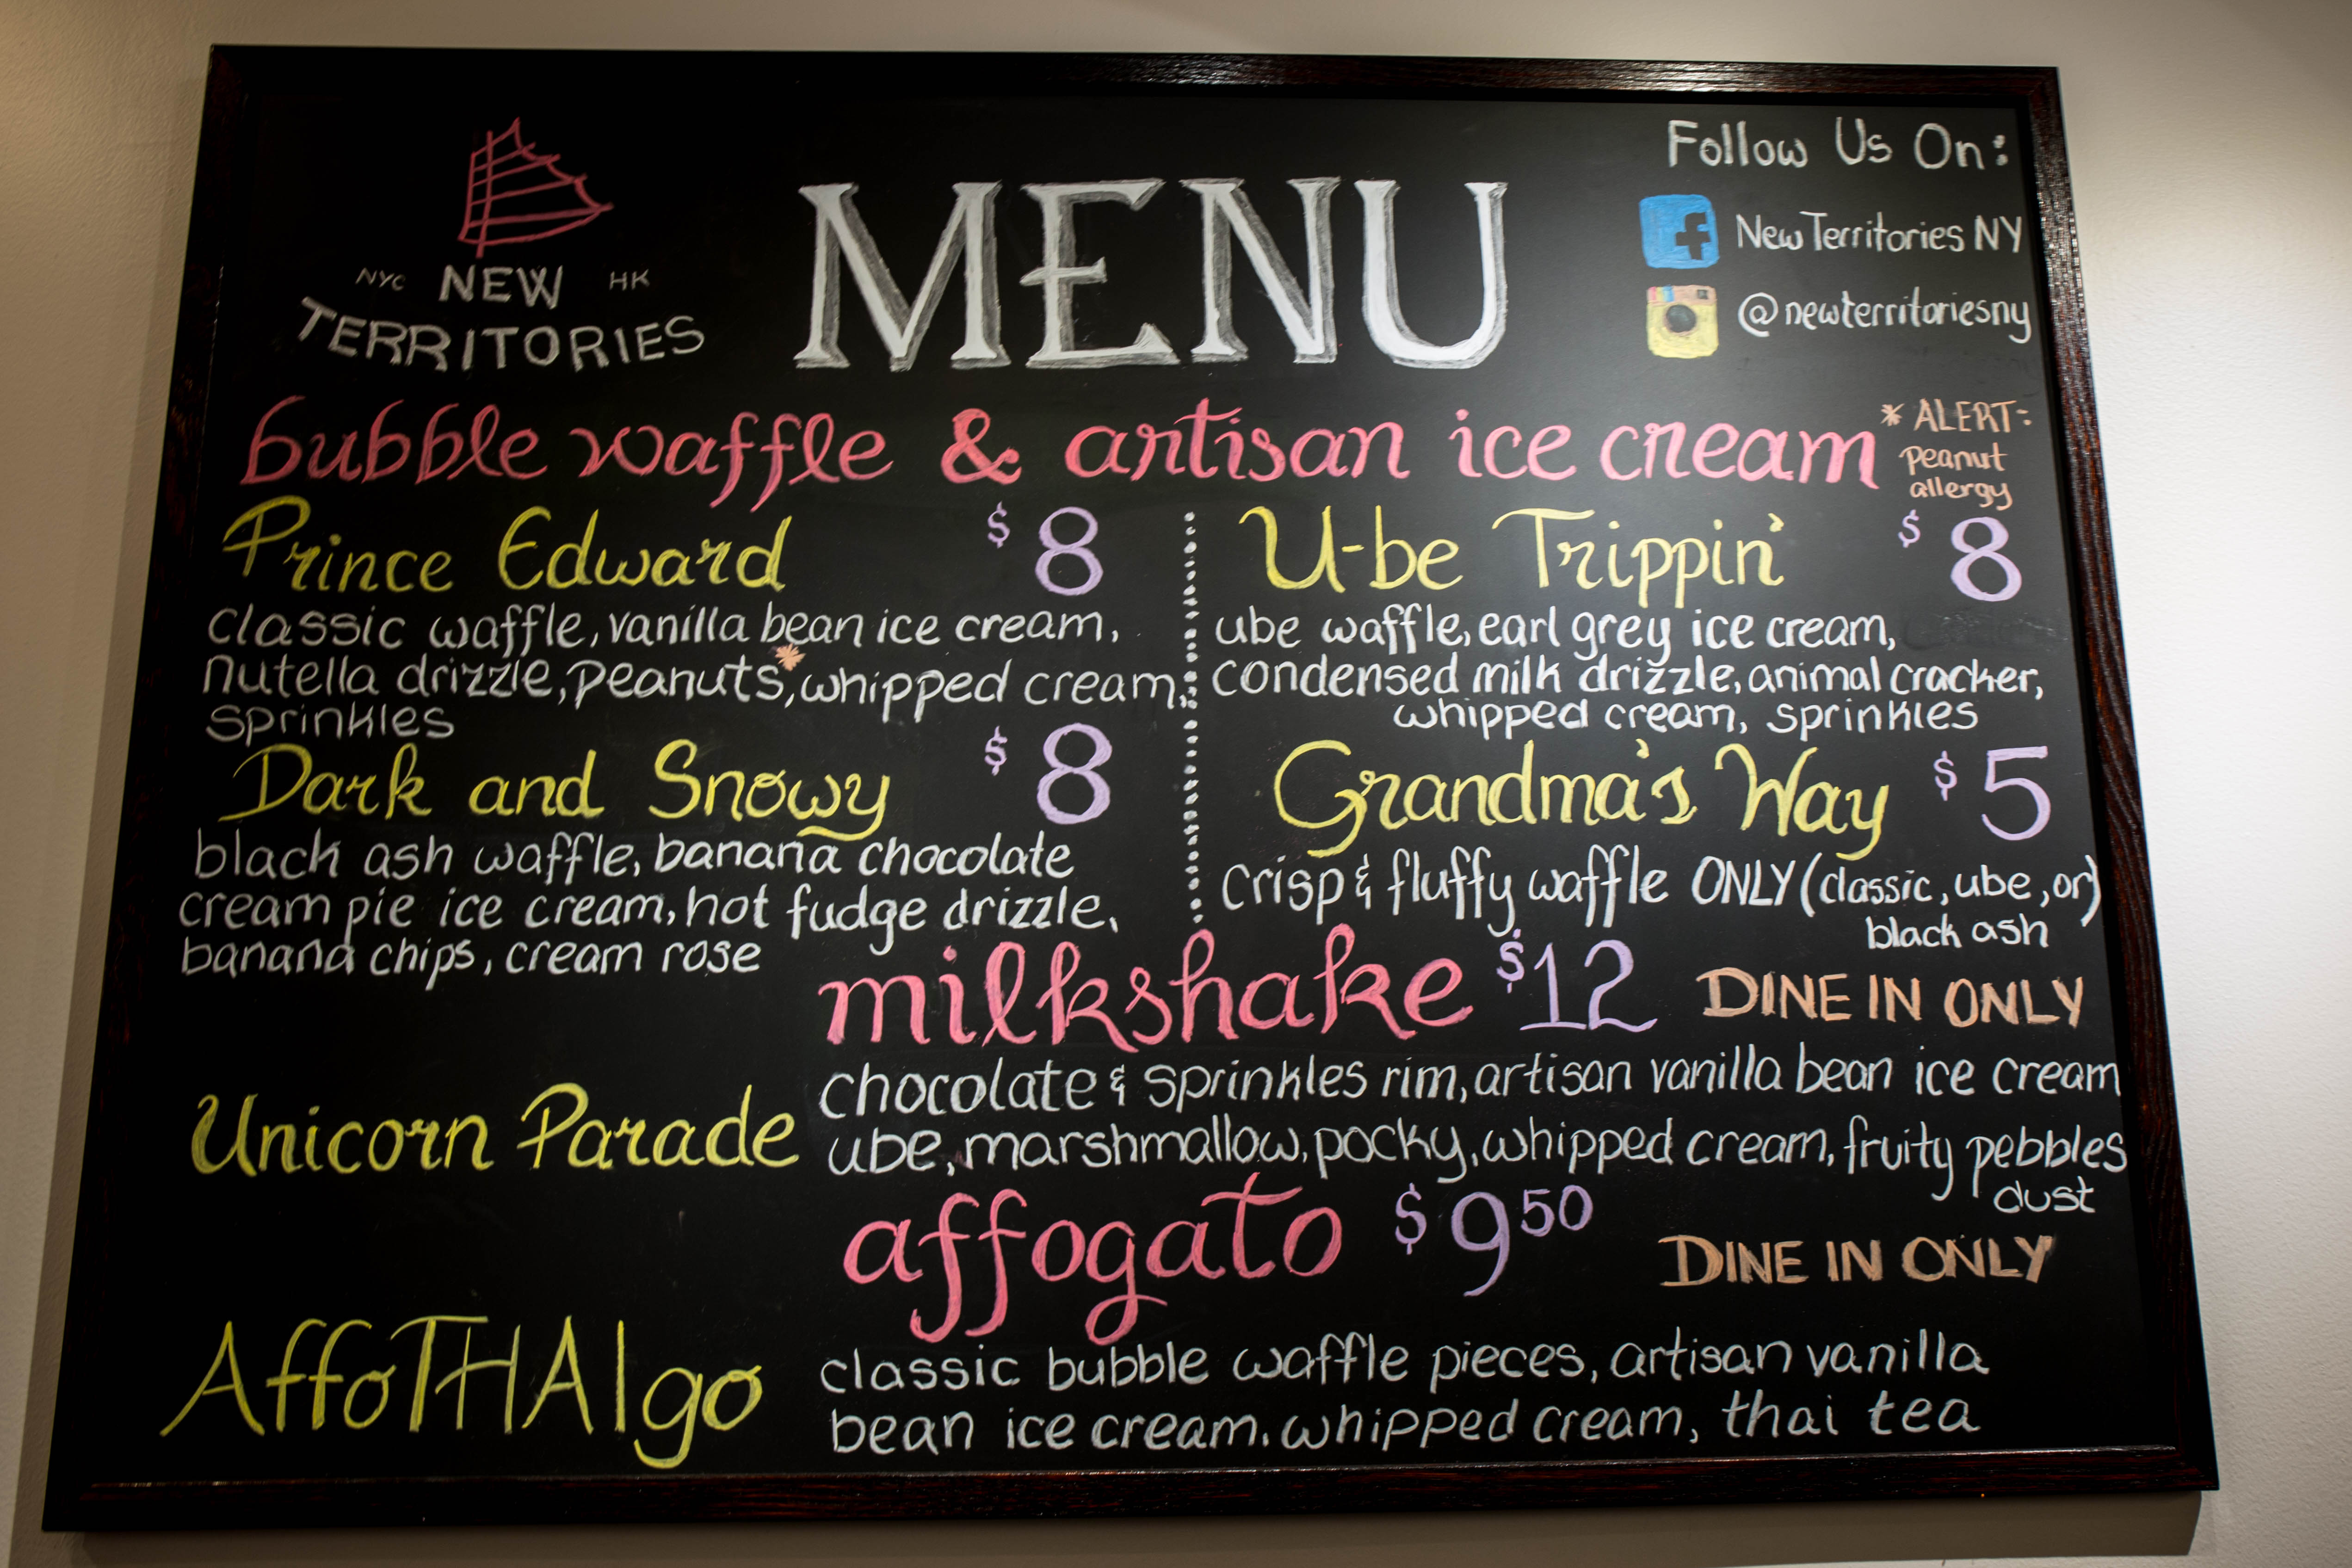 NYC NEW HK
TERRITORIES
MENU
Follow Us On:
f New Territories NY
@newterritoriesny
bubble waffle & artisan ice cream
* ALERT:
peanut
allergy
Prince Edward $8
classic waffle, vanilla bean ice cream,
nutella drizzle, peanuts*, whipped cream,
sprinkles
Dark and Snowy $8
black ash waffle, banana chocolate
cream pie ice cream, hot fudge drizzle,
banana chips, cream rose
U-be Trippin' $8
ube waffle, earl grey ice cream,
condensed milk drizzle, animal cracker,
whipped cream, sprinkles
Grandma's Way $5
crisp & fluffy waffle ONLY (classic, ube, or)
black ash
milkshake $12 DINE IN ONLY
Unicorn Parade
chocolate & sprinkles rim, artisan vanilla bean ice cream
ube, marshmallow, pocky, whipped cream, fruity pebbles
dust
affogato $9.50 DINE IN ONLY
AffoTHAIgo
classic bubble waffle pieces, artisan vanilla
bean ice cream. whipped cream, thai tea